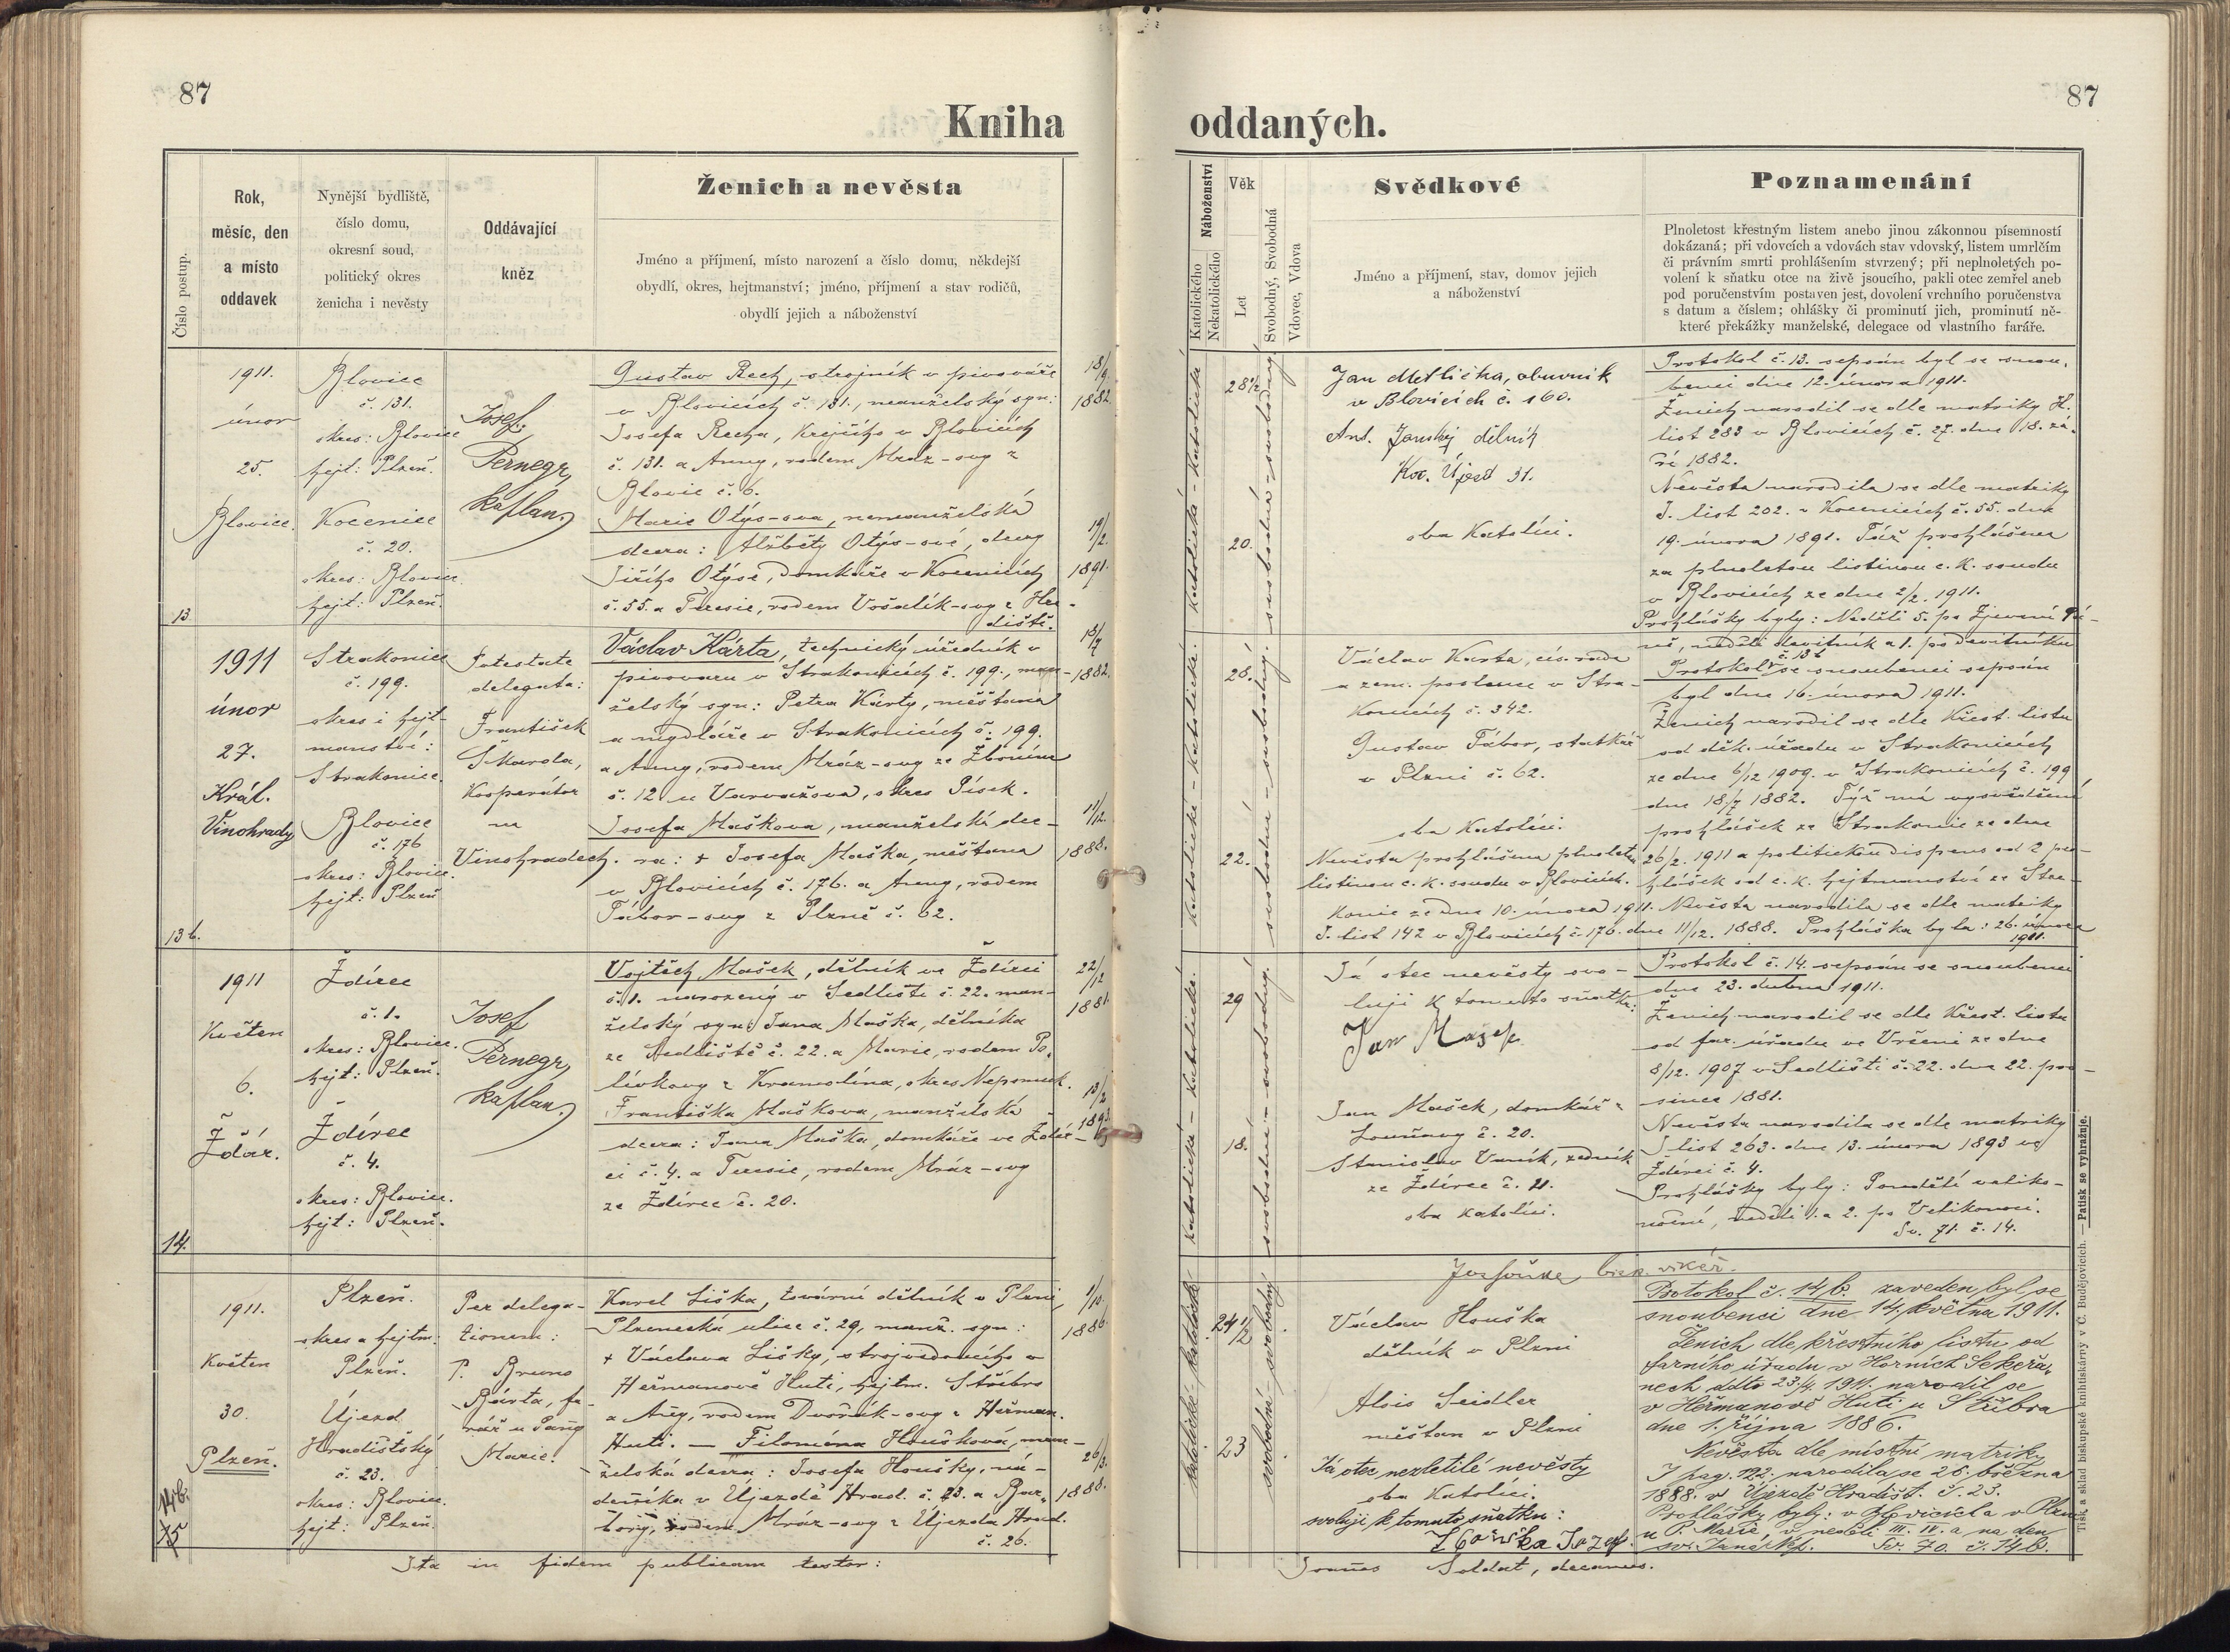 87
87
Kniha
oddaných.
Číslo postup.
Rok,
měsíc, den
a místo
oddavek
Nynější bydliště,
číslo domu,
okresní soud,
politický okres
ženicha i nevěsty
Oddávající
kněz
Ženich a nevěsta
Jméno a příjmení, místo narození a číslo domu, někdejší
obydlí, okres, hejtmanství; jméno, příjmení a stav rodičů,
obydlí jejich a náboženství
Náboženství
Katolického
Nekatolického
Věk
Let
Svobodný, Svobodná
Vdovec, Vdova
Svědkové
Jméno a příjmení, stav, domov jejich
a náboženství
Poznamenání
Plnoletost křestným listem anebo jinou zákonnou písemností
dokázaná; při vdovcích a vdovách stav vdovský, listem umrlčím
či právním smrti prohlášením stvrzený; při neplnoletých po-
volení k sňatku otce na živě jsoucího, pakli otec zemřel aneb
pod poručenstvím postaven jest, dovolení vrchního poručenstva
s datum a číslem; ohlášky či prominutí jich, prominutí ně-
které překážky manželské, delegace od vlastního faráře.
13.
1911.
únor
25.
Blovice.
Blovice
č. 131.
okres: Blovice
hejt: Plzeň.
Kocenice
č. 20.
okres: Blovice.
hejt: Plzeň.
Josef
Pernegr,
kaplan
Gustav Rech, strojník v pivováře
v Blovicích č. 131., manželský syn:
Josefa Recha, krejčího v Blovicích
č. 131. a Anny, rodem Mráz-ovy z
Blovic č. 6.
Marie Otýs-ova, nemanželská
dcera: Alžběty Otýs-ové, dcery
Jiřího Otýse, domkáře v Kocenicích
č. 55. a Teresie, rodem Vošalík-ovy z Hra-
diště.
18/9
1882.
19/2.
1891.
Katolické - Katolické
28 1/2
20.
svobodná - svobodný
Jan Metlička, obuvník
v Blovicích č. 160.
Ant. Janský dělník
Koc. Újezd 31.
oba Katolíci.
Protokol č. 13. sepsán byl se snou-
benci dne 12. února 1911.
Ženich narodil se dle matriky H.
list 283 v Blovicích č. 27. dne 18. zá-
ří 1882.
Nevěsta narodila se dle matriky
J. list 202. v Kocenicích č. 55. dne
19. února 1891. Táž prohlášena
za plnoletou listinou c. k. soudu
v Blovicích ze dne 2/2. 1911.
Prohlášky byly: Neděli 5. po Zjevení Pá-
ně, neděli devítník a 1. po devítníku
13b.
1911
únor
27.
Král.
Vinohrady
Strakonice
č. 199.
okres i hejt-
manství:
Strakonice.
Blovice
č. 176
okres: Blovice.
hejt: Plzeň
Potestate
delegata:
František
Škarda,
Kooperátor
na
Vinohradech.
Václav Kárta, technický úředník v
pivovaru v Strakonicích č. 199., man-
želský syn: Petra Kárty, měšťana
a mydláře v Strakonicích č. 199.
a Anny, rodem Mráz-ovy ze Zbonína
č. 12 u Varvažova, okres Písek.
Josefa Mašková, manželská dce-
ra: † Josefa Maška, měšťana
v Blovicích č. 176. a Anny, rodem
Tábor-ovy z Plzně č. 62.
18/7
1882.
11/12.
1888.
Katolické - Katolické.
28.
22.
svobodná - svobodný.
Václav Karta, cís. rada
a zem. poslanec v Stra-
konicích č. 342.
Gustav Tábor, statkář
v Plzni č. 62.
oba Katolíci.
Nevěsta prohlášena plnoletou
listinou c. k. soudu v Blovicích.
č. 13 b
Protokol se snoubenci sepsán
byl dne 16. února 1911.
Ženich narodil se dle křest. listu
od děk. úřadu v Strakonicích
ze dne 6/12 1909. v Strakonicích č. 199
dne 18/7 1882. Týž má vysvědčení
prohlášek ze Strakonic ze dne
26/2. 1911 a politickou dispens od 2 pro-
hlášek od c. k. hejtmanství ze Stra-
konic ze dne 10. února 1911. Nevěsta narodila se dle matriky
J. list 142 v Blovicích č. 176. dne 11/12. 1888. Prohláška byla: 26. února
1911.
14.
1911
Květen
6.
Ždár.
Ždírec
č. 1.
okres: Blovice.
hejt: Plzeň.
Ždírec
č. 4.
okres: Blovice.
hejt: Plzeň.
Josef
Pernegr,
kaplan
Vojtěch Mašek, dělník ve Ždírci
č. 1. narozený v Sedlišti č. 22. man-
želský syn: Jana Maška, dělníka
ze Sedliště č. 22. a Marie, rodem Po-
lívkovy z Kramolína, okres Nepomuk.
Františka Mašková, manželská
dcera: Jana Maška, domkáře ve Ždír-
ci č. 4. a Teresie, rodem Mráz-ovy
ze Ždírce č. 20.
22/12
1881.
13/2
1893.
Katolické - Katolické.
29
18.
svobodná - svobodný.
Já otec nevěsty svo-
luji k tomuto sňatku:
Jan Mašek
Jan Mašek, domkář z
Louňovy č. 20.
Stanislav Vaník, zedník
ze Ždírce č. 21.
oba katolíci.
Protokol č. 14. sepsán se snoubenci
dne 23. dubna 1911.
Ženich narodil se dle křest. listu
od far. úřadu ve Vrčeni ze dne
8/12. 1907 v Sedlišti č. 22. dne 22. pro-
since 1881.
Nevěsta narodila se dle matriky
J list 263. dne 13. února 1893 ve
Ždírci č. 4.
Prohlášky byly: Pondělí veliko-
noční, neděli 1. a 2. po Velikonoci.
Sv. 71. č. 14.
bisk. vikář.
14b.
15
1911.
Květen
30.
Plzeň.
Plzeň.
okres a hejtm:
Plzeň.
Újezd
Hradištský
č. 23.
okres: Blovice.
hejt: Plzeň.
Per delega-
tionem:
P. Bruno
Bárta, fa-
rář u Panny
Marie.
Karel Liška, tovární dělník v Plzni,
Plzenecká ulice č. 29, manž. syn:
† Václava Lišky, strojvedoucího v
Heřmanově Huti, hejtm. Stříbro
a Anny, rodem Dvořák-ovy z Heřman.
Huti. — Filoména Houšková, man-
želská dcera: Josefa Houšky, ná-
deníka v Újezdě Hrad. č. 23. a Bar-
bory, rodem Mráz-ovy z Újezda Hrad.
č. 26.
1/10.
1886.
26/3.
1888.
katolické katolické
24 1/2
23
svobodná svobodný
Václav Houška
dělník v Plzni
Alois Seidler
měšťan v Plzni
Já otec nezletilé nevěsty
oba Katolíci.
svoluji k tomuto sňatku:
Houška Jozef.
Protokol č. 14/b. zaveden byl se
snoubenci dne 14. května 1911.
Ženich dle křestního listu od
farního úřadu v Horních Sekeřa-
nech ddto 23./4. 1911. narodil se
v Heřmanově Huti u Stříbra
dne 1. října 1886.
Nevěsta dle místní matriky
J pag. 192. narodila se 26. března
1888. v Újezdě Hradišt. č. 23.
Prohlášky byly: v Blovicích a v Plzni
u P. Marie, v neděli III. IV. a na den
sv. Jana Np. Sv. 70. č. 14b.
Ita in fidem publicam testor:
Joannes Soldat, decanus.
Tisk a sklad biskupské knihtiskárny v Č. Budějovicích. — Patisk se vyhražuje.